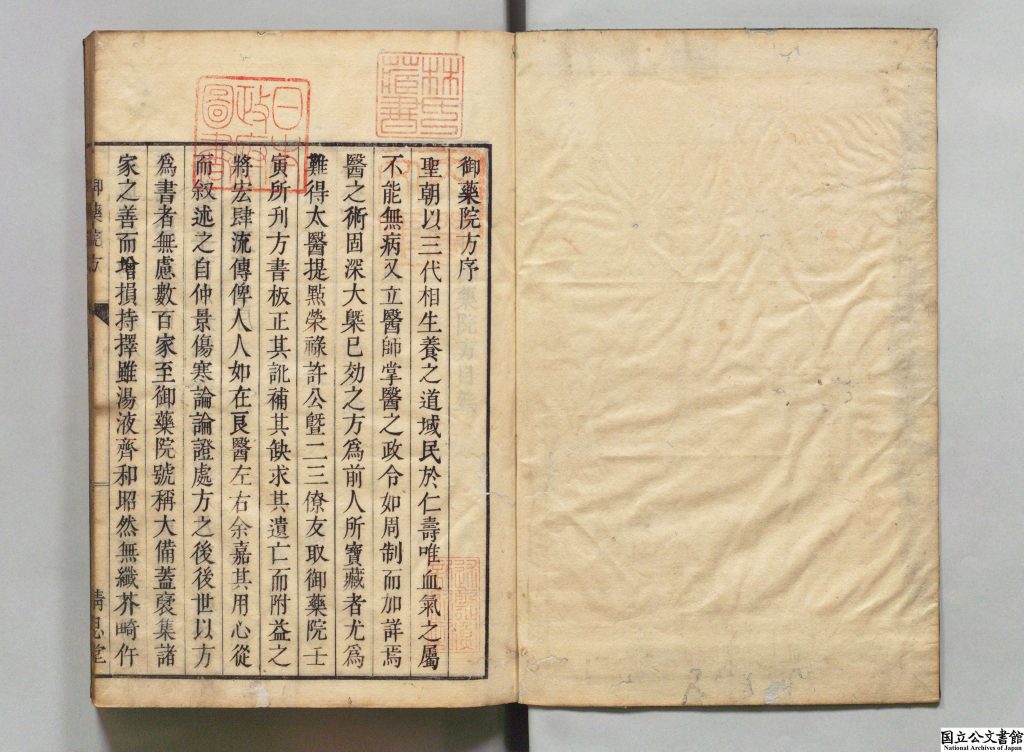 御藥院方序
聖朝以三代相生養之道域民於仁壽唯血氣之屬
不能無病又立醫師掌醫之政令如周制而加詳焉
醫之術固深大槩已効之方爲前人所寶藏者尤爲
難得太醫提㸃榮祿許公曁二三僚友取御藥院壬
寅所刋方書板正其訛補其缺求其遺亡而附益之
將宏肆流傳俾人人如在良醫左右余嘉其用心從
而叙述之自仲景傷寒論論證處方之後後世以方
爲書者無慮數百家至御藥院號稱大備蓋裒集諸
家之善而增損持擇雖湯液齊和昭然無纖芥畸仵
御藥院方
精思堂
林氏藏書
日本政府圖書
国立公文書館
National Archives of Japan